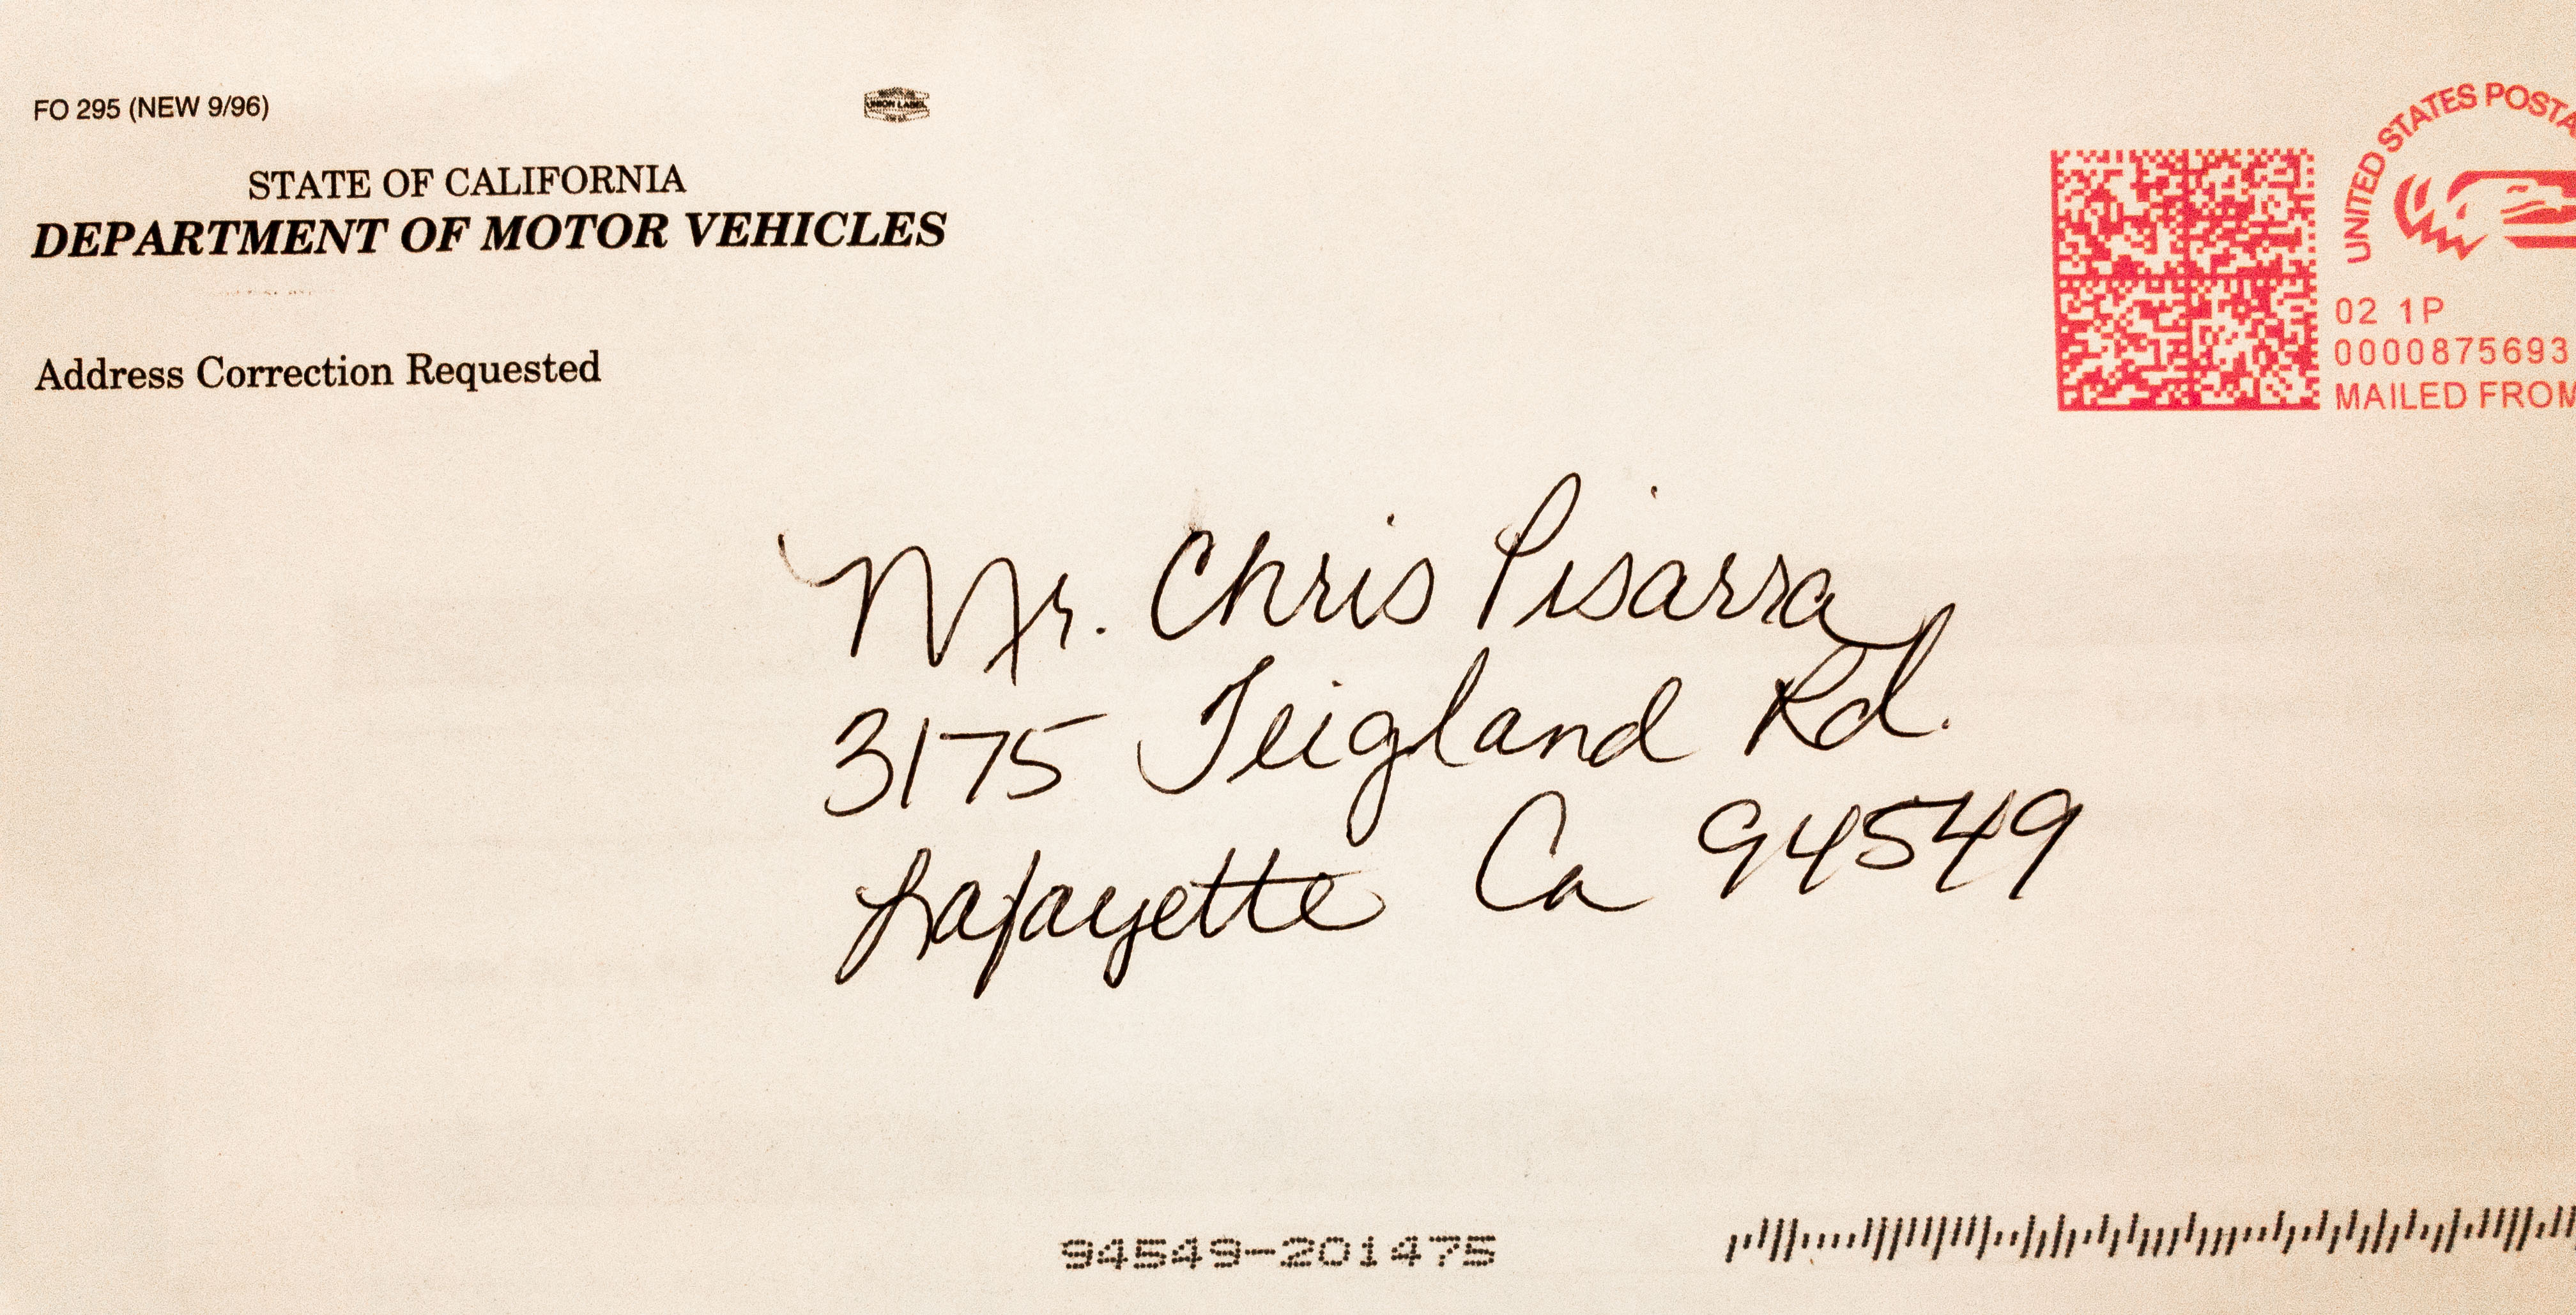 FO 295 (NEW 9/96)
UNION LABEL
STATE OF CALIFORNIA
DEPARTMENT OF MOTOR VEHICLES
Address Correction Requested
UNITED STATES POSTA
02 1P
0000875693
MAILED FROM
Mr. Chris Pisarra
3175 Teigland Rd.
Lafayette Ca 94549
94549-201475